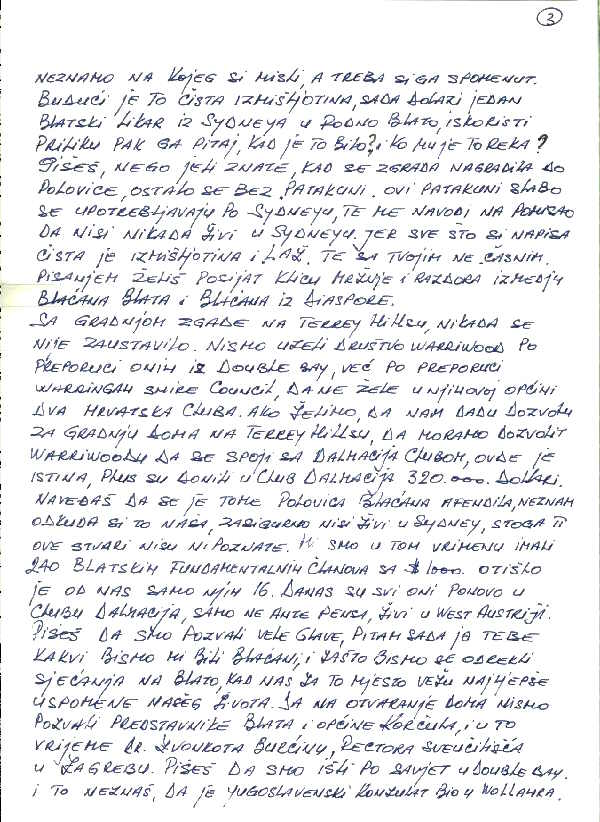 3
NEZNAMO NA KOJEG SI MISLI, A TREBA SI GA SPOMENUT.
BUDUĆI JE TO ČISTA IZMIŠLJOTINA, SADA DOLAZI JEDAN
BLATSKI LIKAR IZ SYDNEYA U RODNO BLATO, ISKORISTI
PRILIKU PAK GA PITAJ, KAD JE TO BILO? I KO MU JE TO REKA?
PIŠEŠ, NEGO JELI ZNATE, KAD SE ZGRADA NAGRADILA DO
POLOVICE, OSTALO SE BEZ PATAKUNI. OVI PATAKUNI SLABO
SE UPOTREBLJAVAJU PO SYDNEYU, TE ME NAVODI NA POMISAO
DA NISI NIKADA ŽIVI U SYDNEYU. JER SVE ŠTO SI NAPISA
ČISTA JE IZMIŠLJOTINA I LAŽ. TE SA TVOJIM NE ČASNIM
PISANJEM ŽELIŠ POSIJAT KLICU MRŽNJE I RAZDORA IZMEDJU
BLAĆANA BLATA I BLAĆANA IZ DIASPORE.
SA GRADNJOM ZGADE NA TERREY HILLSU, NIKADA SE
NIJE ZAUSTAVILO. NISMO UZELI DRUŠTVO WARRIWOOD PO
PREPORUCI ONIH IZ DOUBLE BAY, VEĆ PO PREPORUCI
WARRINGAH SHIRE COUNCIL, DA NE ŽELE U NJIHOVOJ OPĆINI
DVA HRVATSKA CLUBA. AKO ŽELIMO, DA NAM DADU DOZVOLU
ZA GRADNJU DOMA NA TERREY HILLSU, DA MORAMO DOZVOLIT
WARRIWOODU DA SE SPOJI SA DALMACIJA CLUBOM, OVDE JE
ISTINA, PLUS SU DONILI U CLUB DALMACIJA 320.000. DOLARI.
NAVEDAŠ DA SE JE TOME POLOVICA BLAĆANA AFENDILA, NEZNAM
ODKUDA SI TO NAŠA, ZASIGURNO NISI ŽIVI U SYDNEY, STOGA TI
OVE STVARI NISU NI POZNATE. MI SMO U TOM VRIMENU IMALI
240 BLATSKIH FUNDAMENTALNIH ČLANOVA SA $ 1000. OTIŠLO
JE OD NAS SAMO NJIH 16. DANAS SU SVI ONI PONOVO U
CLUBU DALMACIJA, SAMO NE ANTE PENSA, ŽIVI U WEST AUSTRIJI.
PIŠEŠ DA SMO POZVALI VELE GLAVE, PITAM SADA JA TEBE
KAKVI BISMO MI BILI BLAĆANI, I ZAŠTO BISMO SE ODREKLI
SJEĆANJA NA BLATO, KAD NAS ZA TO MJESTO VEŽU NAJLJEPŠE
USPOMENE NAŠEG ŽIVOTA. DA NA OTVARANJE DOMA NISMO
POZVALI PREDSTAVNIKE BLATA I OPĆINE KORČULA, I U TO
VRIJEME DR. ZVONKOTA BURČINU, RECTORA SVEUČILIŠĆA
U ZAGREBU. PIŠEŠ DA SMO IŠLI PO SAVJET U DOUBLE BAY.
I TO NEZNAŠ, DA JE YUGOSLAVENSKI KONZULAT BIO U WOLLAHRA.